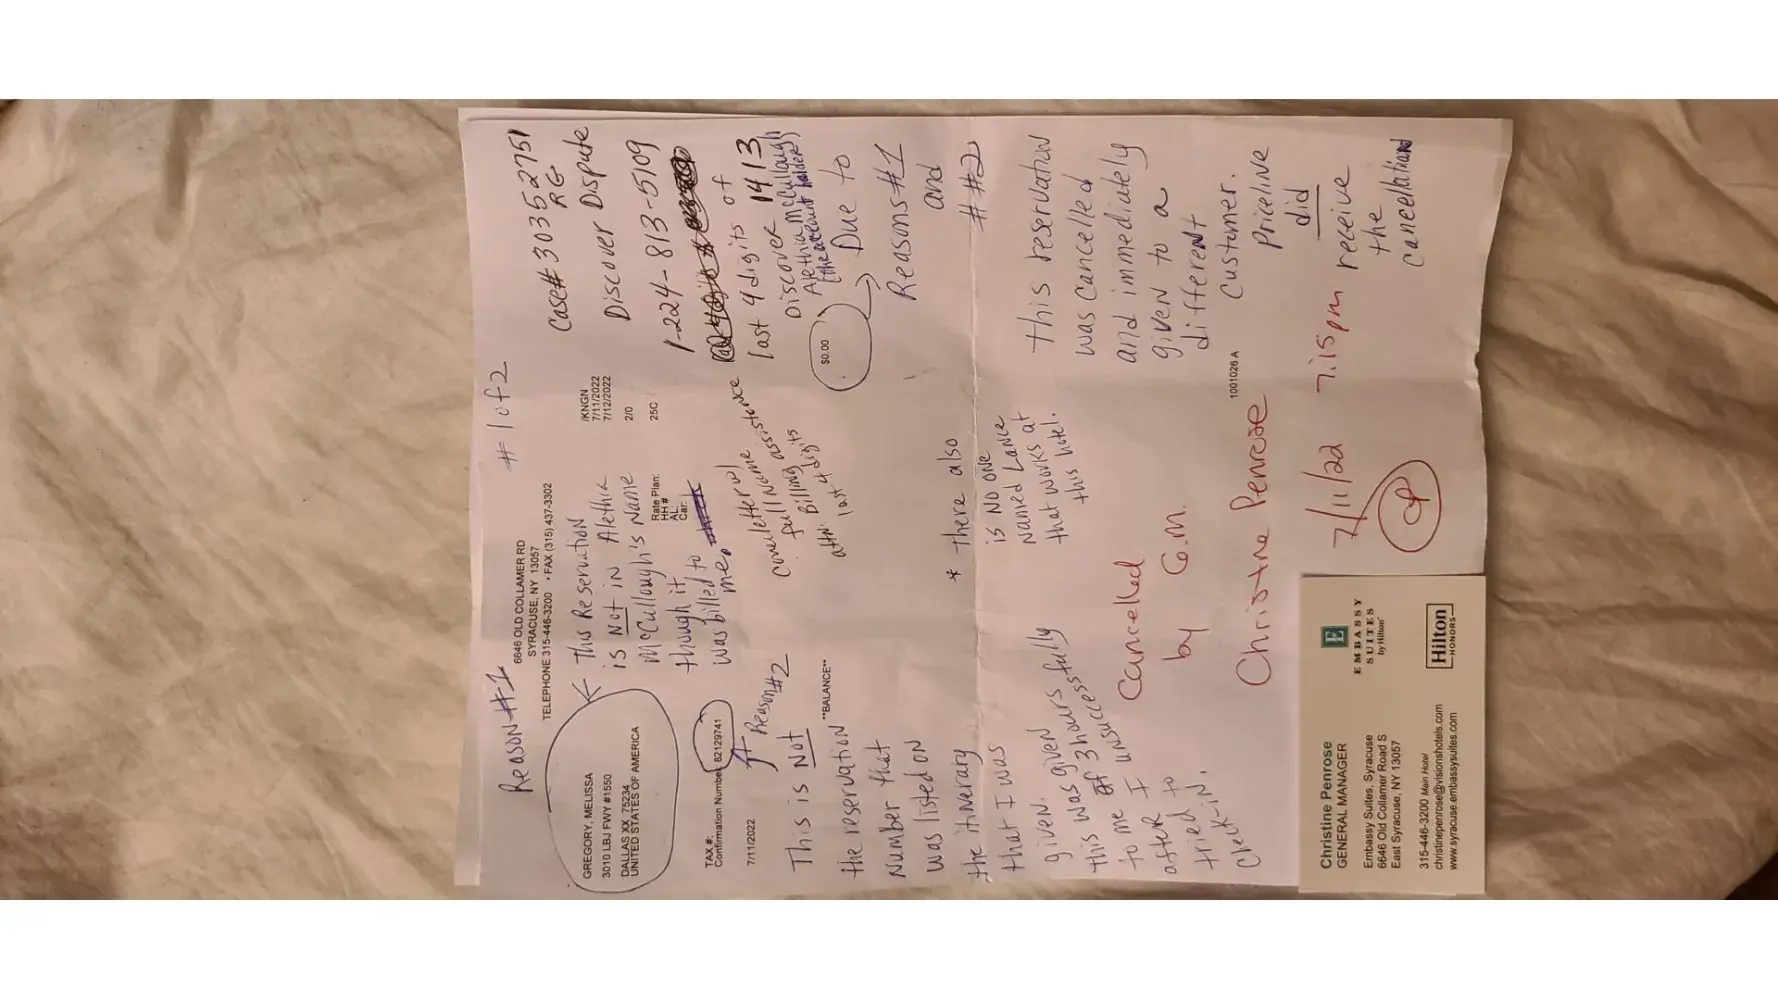 # 1 of 2
Case# 3035 2751
RG
Discover Dispute
1-224-813-5109
last 4 digits of
Discover 1413
Alethia McCullough
(the account holder)
Due to
Reasons #1
and
# #2
Reason #1
6646 OLD COLLAMER RD
SYRACUSE, NY 13057
TELEPHONE 315-446-3200 • FAX (315) 437-3302
GREGORY, MELISSA
3010 LBJ FWY #1550
DALLAS XX 75234
UNITED STATES OF AMERICA
This Reservation
is Not in Alethia
McCullough's Name
though it
was billed to
me.
/KNGN
7/11/2022
7/12/2022
2/0
25C
Rate Plan:
HH #
AL:
Car:
TAX #:
Confirmation Number: 82129741
7/11/2022
Reason #2
**BALANCE**
$0.00
Cover letter w/
full Name assistence
attn: Billing
last 4 digits
This is Not
the reservation
Number that
was listed on
the itinerary
that I was
given.
this was given
to me 3 hours
after I unsuccessfully
tried to
check-in.
* there also
is NO ONE
Named Lance
that works at
this hotel.
this reservation
was cancelled
and immediately
given to a
different
customer.
Priceline
did
receive
the
cancellation
1001026 A
Cancelled
by G.M.
Christine Penrose
7/11/22 7:15pm
CP
Christine Penrose
GENERAL MANAGER
Embassy Suites, Syracuse
6646 Old Collamer Road S
East Syracuse, NY 13057
315-446-3200 Main Hotel
christinepenrose@visionshotels.com
www.syracuse.embassysuites.com
E
EMBASSY
SUITES
by Hilton
Hilton
HONORS